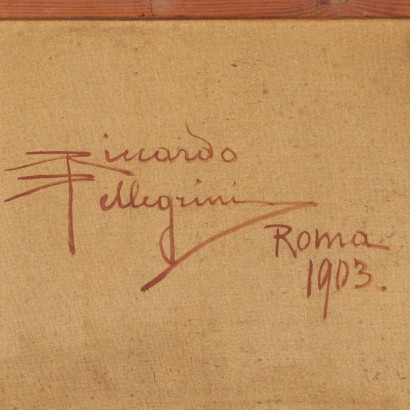 Riccardo
Pellegrini
Roma
1903.